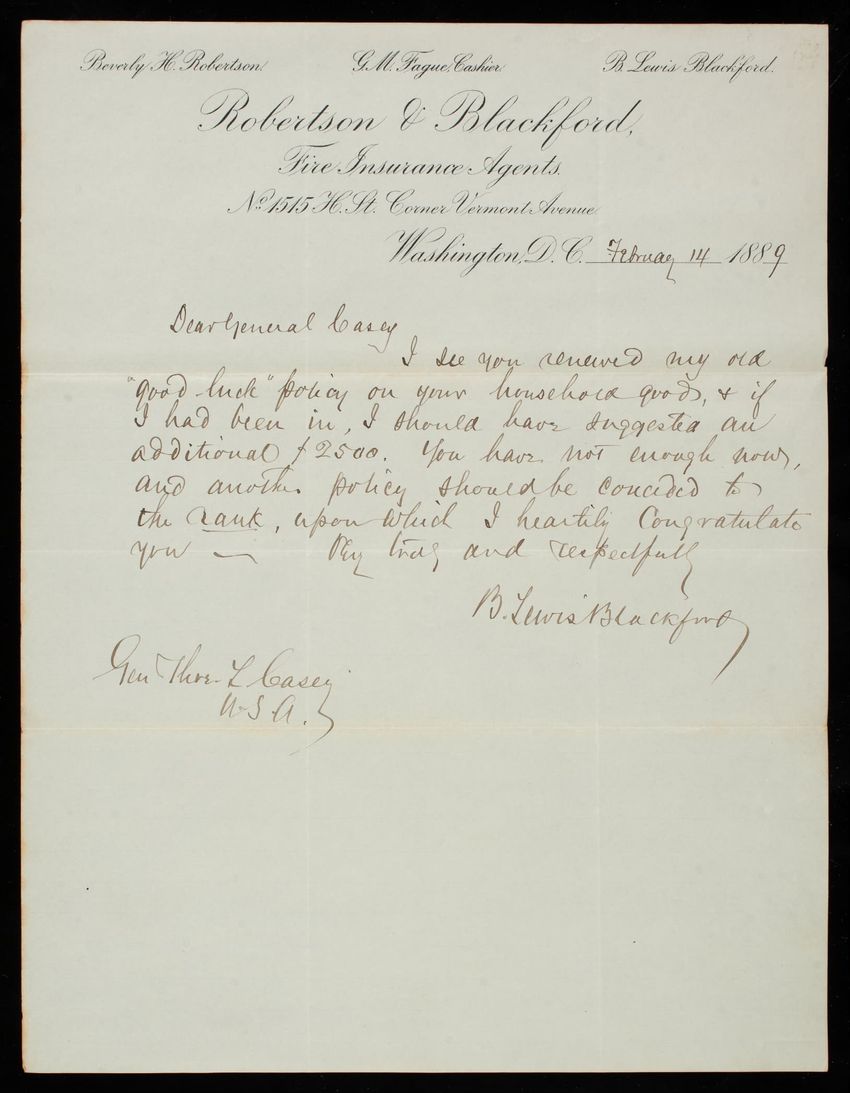 Beverly H. Robertson. G.M. Fague, Cashier. B. Lewis Blackford.
Robertson & Blackford,
Fire Insurance Agents.
No. 1515 H. St. Corner Vermont Avenue
Washington, D.C. February 14 1889
Dear General Casey
I see you renewed my old
"good luck" policy on your household goods, & if
I had been in, I should have suggested an
additional $2500. You have not enough now,
and another policy should be conceded to
the rank, upon which I heartily Congratulate
you — Very truly and respectfully
B. Lewis Blackford
Gen Thos. L Casey
U.S.A.